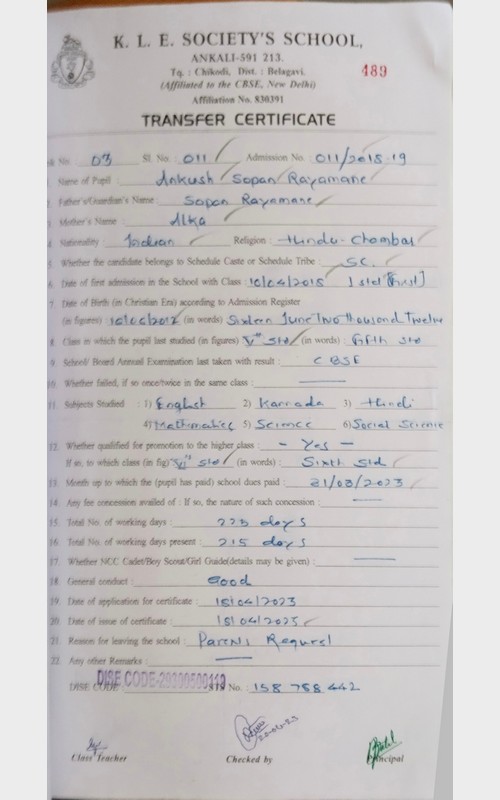 K. L. E. SOCIETY'S SCHOOL,
ANKALI-591 213.
Tq. : Chikodi, Dist. : Belagavi.
489
(Affiliated to the CBSE, New Delhi)
Affiliation No. 830391
TRANSFER CERTIFICATE
No. 03 Sl. No. : 011 Admission No. 011/2018-19
1 Name of Pupil : Ankush Sopan Rayamane
2 Father's/Guardian's Name : Sopan Rayamane
3 Mother's Name : Alka
4 Nationality : Indian Religion : Hindu-Chambar
5 Whether the candidate belongs to Schedule Caste or Schedule Tribe : SC.
6 Date of first admission in the School with Class : 10/04/2018 1 std [First]
7 Date of Birth (in Christian Era) according to Admission Register
(in figures) (in words) Sixteen June Two thousand Twelve
8 Class in which the pupil last studied (in figures) Vth std (in words) : Fifth std
9 School/ Board Annual Examination last taken with result : CBSE
10 Whether failed, if so once/twice in the same class :
11 Subjects Studied : 1) English 2) Kannada 3) Hindi
4) Mathematics 5) Science 6) Social Science
12 Whether qualified for promotion to the higher class : - Yes -
If so, to which class (in fig) VIth std (in words) : Sixth Std
13 Month up to which the (pupil has paid) school dues paid : 31/03/2023
14 Any fee concession availed of : If so, the nature of such concession :
15 Total No. of working days : 223 days
16 Total No. of working days present : 215 days
17 Whether NCC Cadet/Boy Scout/Girl Guide(details may be given) :
18 General conduct : Good
19 Date of application for certificate : 15/04/2023
20 Date of issue of certificate : 15/04/2023
21 Reason for leaving the school : Parents Request
22 Any other Remarks :
DISE CODE DISE CODE-29300500119 STS No. : 158 788 442
Class Teacher Checked by Principal